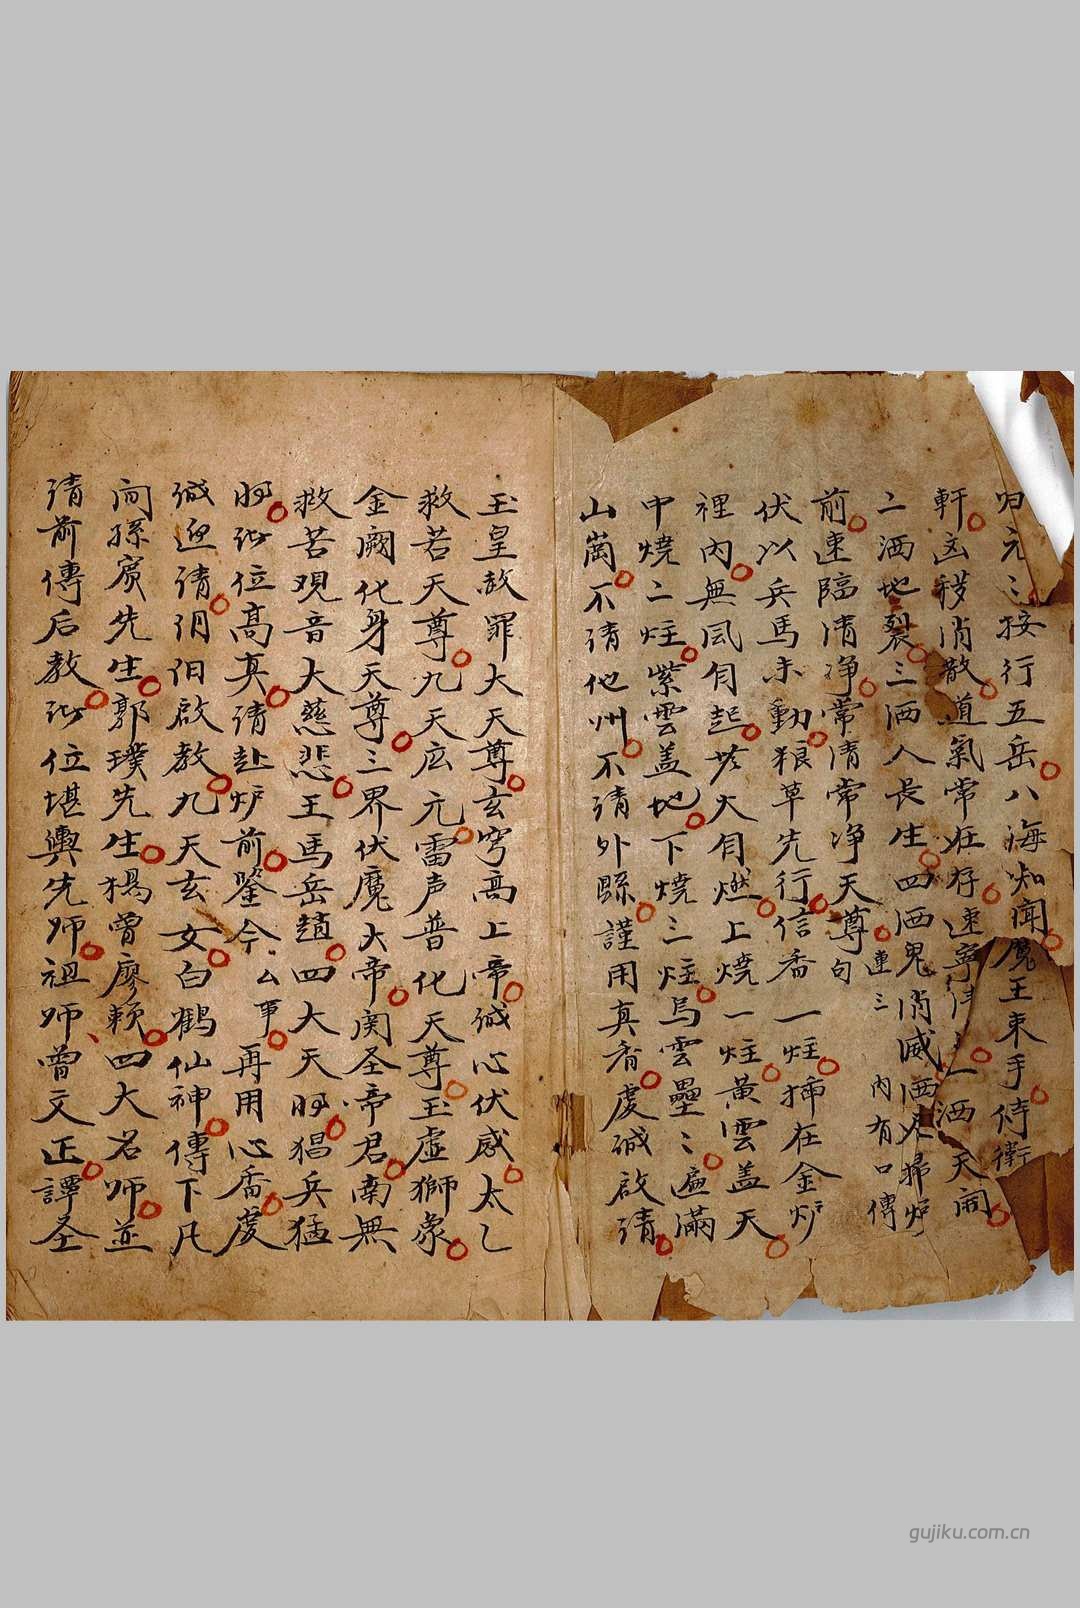 归元〻按行五岳八海知聞魔王束手侍衛
軒凶穢消散道氣常在存速寧清一洒天開
二洒地裂三洒人長生四洒鬼消滅洒水掃炉
前速臨清净常清常净天尊句連三内有口傳
伏以兵馬未動粮草先行信香一炷揷在金炉
裡内無風自起岁大自燃上燒一炷黄雲盖天
中燒二炷紫雲盖地下燒三炷烏雲壘〻遍滿
山崗不請他州不請外縣謹用真香虔诚啟請
玉皇赦罪大天尊玄穹高上帝诚心伏感太乙
救苦天尊九天应元雷声普化天尊玉虚獅象
金闕化身天尊三界伏魔大帝関圣帝君南無
救苦观音大慈悲王馬岳趙四大天将猖兵猛
将诸位高真請赴炉前鑒今公事再用心香虔
诚迎請阴阳啟教九天玄女白鶴仙神傳下凡
间孫宾先生郭璞先生楊曾廖赖四大名师並
請前傳后教诸位堪輿先师祖师曾文正譚圣
gujiku.com.cn